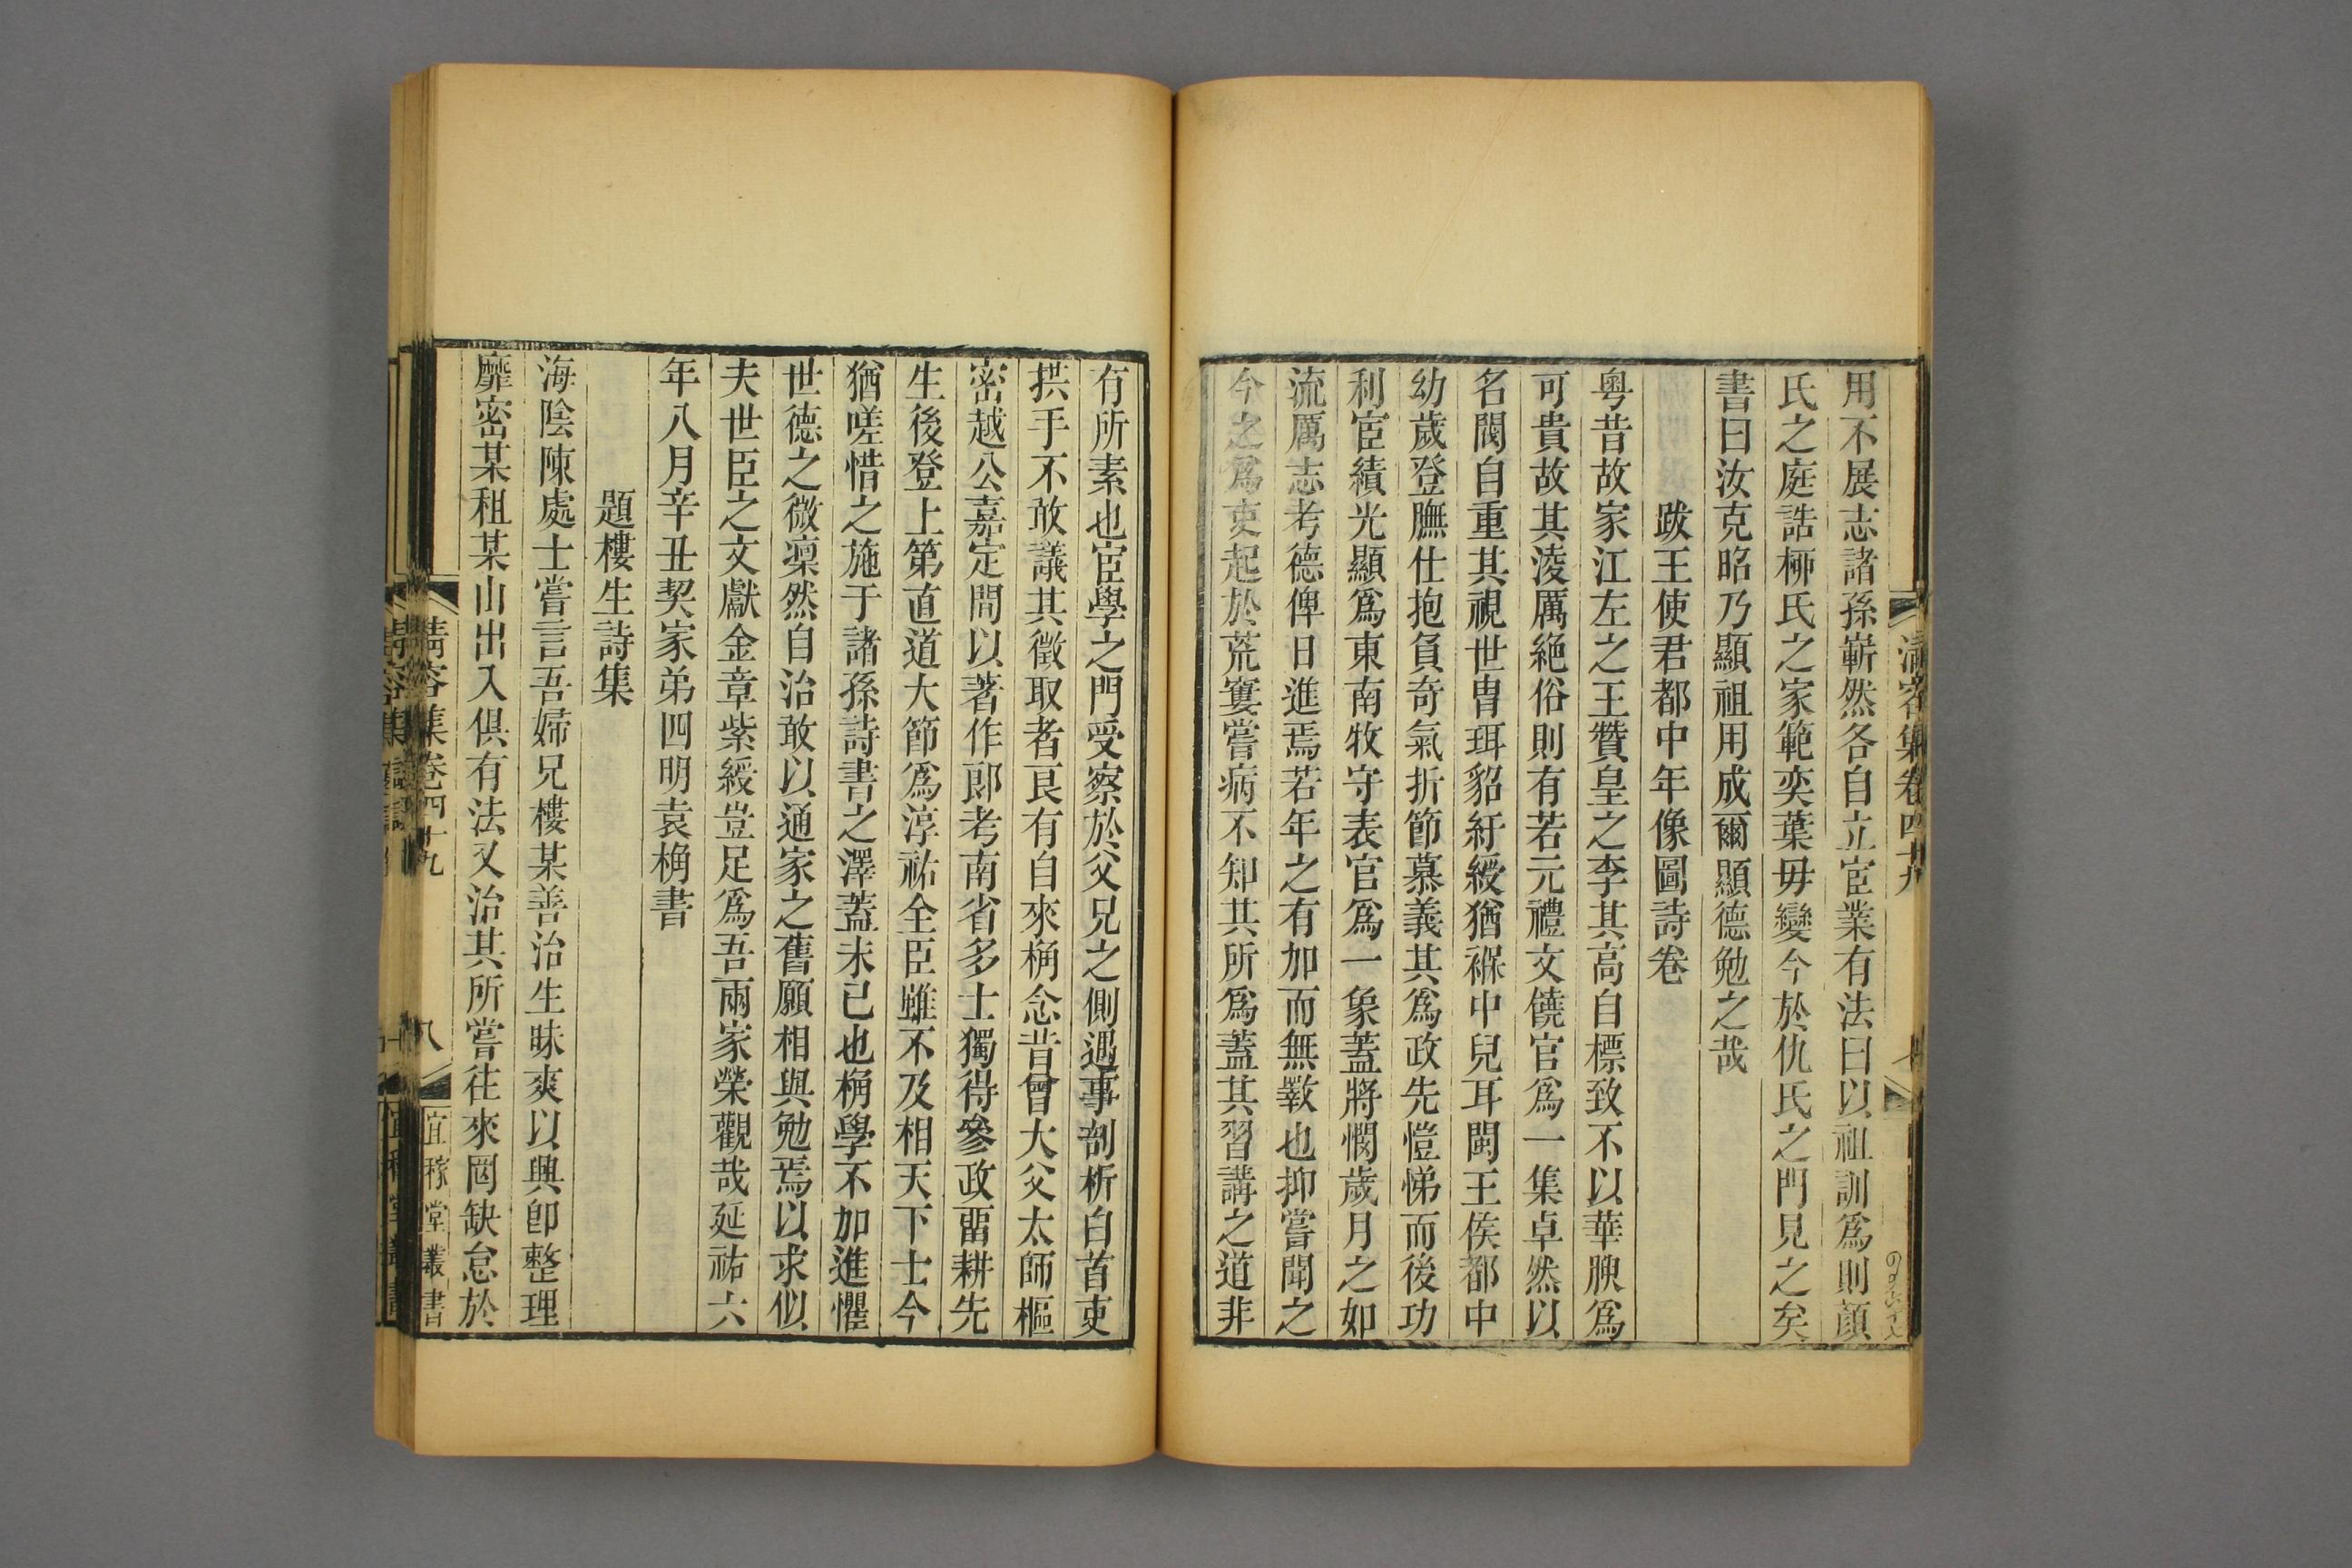 清容集卷四十九
用不展志諸孫嶄然各自立宦業有法曰以祖訓爲則顔
氏之庭誥桺氏之家範奕葉毋變今於仇氏之門見之矣
書曰汝克昭乃顯祖用成爾顯德勉之哉
跋王使君都中年像圖詩卷
粤昔故家江左之王贊皇之李其高自標致不以華腴爲
可貴故其淩厲絶俗則有若元禮文饒官爲一集卓然以
名閥自重其視世胄珥貂紆綬猶褓中兒耳閩王侯都中
幼歲登膴仕抱負奇氣折節慕義其爲政先愷悌而後功
利宦績光顯爲東南牧守表官爲一象蓋將憫歲月之如
流厲志考德俾日進焉若年之有加而無斁也抑嘗聞之
今之爲吏起於荒寠嘗病不知其所爲蓋其習講之道非
有所素也宦學之門受察於父兄之側遇事剖析白首吏
拱手不敢議其徵取者良有自來桷念昔曾大父太師樞
密越公嘉定間以著作郎考南省多士獨得參政畱耕先
生後登上第直道大節爲淳祐全臣雖不及相天下士今
猶嗟惜之施于諸孫詩書之澤蓋未已也桷學不加進懼
世德之微凜然自治敢以通家之舊願相與勉焉以求似
夫世臣之文獻金章紫綬豈足爲吾兩家榮觀哉延祐六
年八月辛丑契家弟四明袁桷書
題樓生詩集
海陰陳處士嘗言吾婦兄樓某善治生昧爽以興卽整理
靡密某租某山出入俱有法又治其所嘗往來罔缺怠於
清容集卷四十九
八
宜稼堂叢書